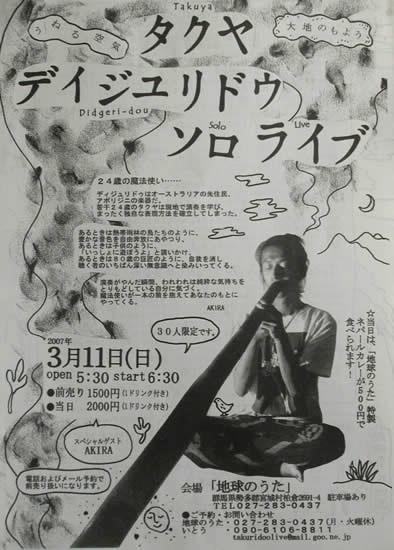 Takuya
うねる空気
タクヤ
大地のもよう
デイジュリドウ
Didgeri-dou
Solo Live
ソロ ライブ
24歳の魔法使い……
ディジュリドゥはオーストラリアの先住民、
アボリジニの楽器だ。
若干24歳のタクヤは現地で演奏を学び、
まったく独自な表現方法を確立してしまった。
あるときは熱帯雨林の鳥たちのように、
豊かな音色を自由奔放にあやつり、
あるときは子供のように、
「いっしょに遊ぼうよ」と誘いかけ、
あるときは80歳の巨匠のように、自我を消し
聴く者のいちばん深い無意識へと染みいってくる。
演奏がやんだ瞬間、われわれは純粋な気持ちを
とりもどしている自分に気づく。
魔法使いが一本の筒を抱えてあなたのもとに
やってくる。
AKIRA
30人限定です。
☆当日は、「地球のうた」特製
ネパールカレーが500円で
食べられます！
2007年
3月11日(日)
open 5:30 start 6:30
●前売り 1500円(1ドリンク付き)
●当日 2000円(1ドリンク付き)
スペシャルゲスト
AKIRA
電話およびメール予約で
前売り扱いになります。
会場 「地球のうた」
群馬県勢多郡宮城村柏倉2691-4 駐車場あり
TEL027-283-0437
●ご予約・お問い合わせ
地球のうた・027-283-0437(月・火曜休)
いとう 090-6106-8811
takuridoolive@mail.goo.ne.jp